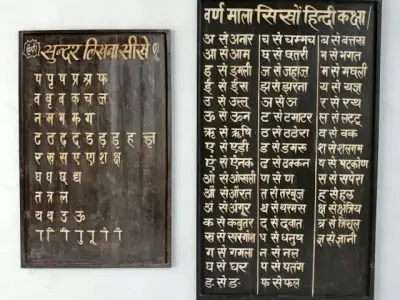 सुन्दर लिखना सीखे
प पृ ष प्र श्र फ
व वृ व क च ज
न म भ झ ग
ट ठ द द ड ड़ ह ज्ञ
र ख स ए ऐ श क्ष
घ ध छ द्य
त त्र ल
य थ उ ऊ
वर्ण माला सिखों हिन्दी कक्षा
अ से अनार
आ से आम
इ से इमली
ई से ईस
उ से उल्लू
ऊ से ऊन
ऋ से ऋषि
ए से एडी
ऐ से ऐनक
ओ से ओखली
औ से औरत
अं से अंगूर
क से कबुतर
ख से खरगोश
ग से गमला
घ से घर
ङ से ङ
च से चम्मच
छ से छतरी
ज से जहाज
झ से झरना
ञ से ञ
ट से टमाटर
ठ से ठठेरा
ड से डमरू
ढ से ढक्कन
ण से ण
त से तरबूज
थ से थरमस
द से दवात
ध से धनुष
न से नल
प से पतंग
फ से फल
ब से बतख
भ से भगत
म से मछली
य से यज्ञ
र से रथ
ल से लट्टू
व से वक
श से शलगम
ष से षटकोण
स से सपेरा
ह से हल
क्ष से क्षत्रिय
त्र से त्रिशूल
ज्ञ से ज्ञानी